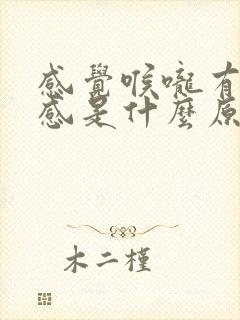 感覺喉嚨有
感是什麼原
木二槿